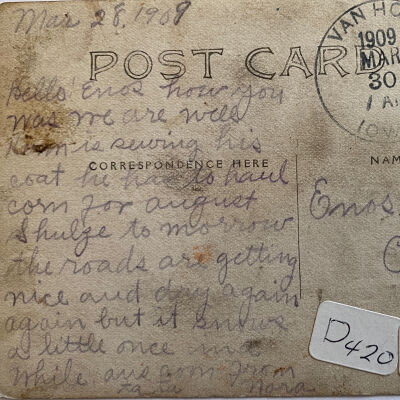 Mar 28, 1909
POST CARD
VAN HO
1909
MAR
30
1 A
IOW
Hello Enos how you
was we are well
is sewing his
CORRESPONDENCE HERE
NAM
coat he has to haul
corn for august
Shulze to morrow
Enos
the roads are getting
nice and dry again
again but it snows
a little once in a
while ans soon From
Nora
D420